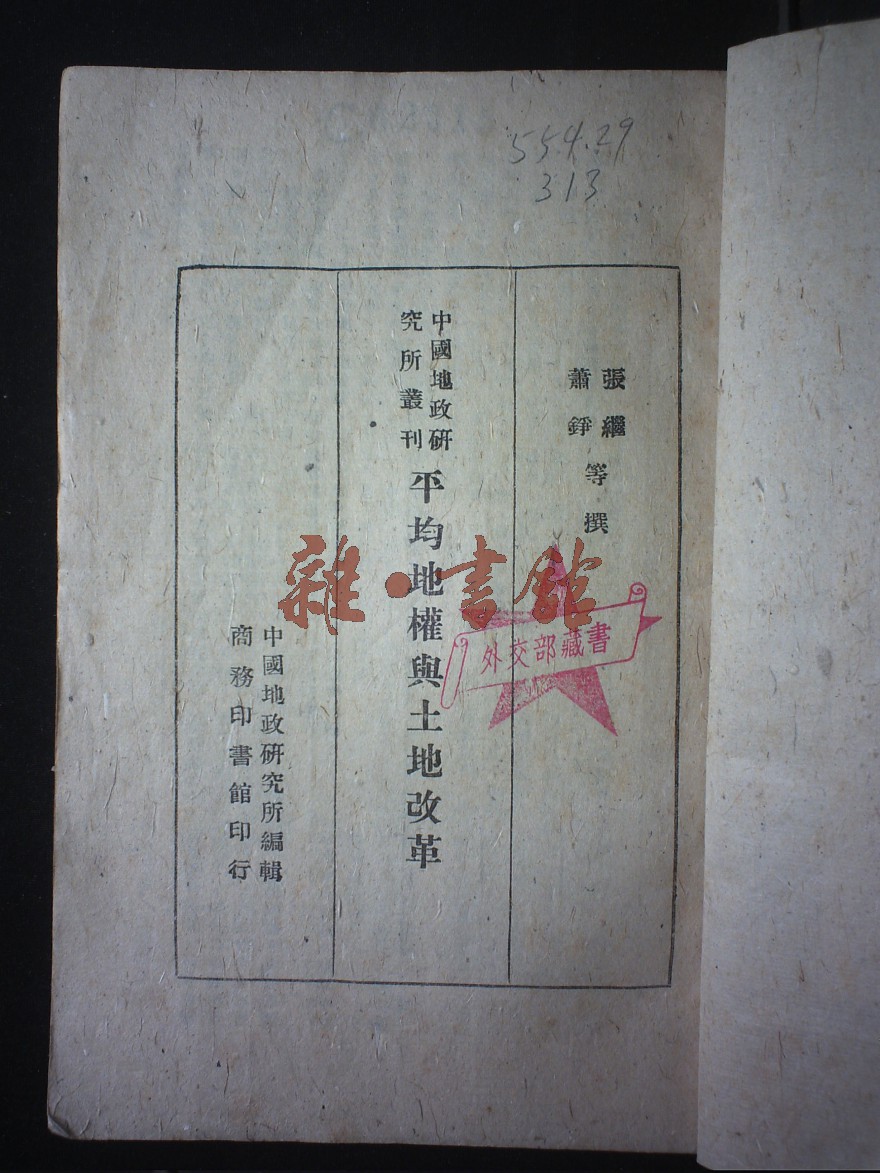 554.29
313
張繼
蕭錚
等撰
中國地政研
究所叢刊
平均地權與土地改革
中國地政研究所編輯
商務印書館印行
雜·書館
外交部藏書